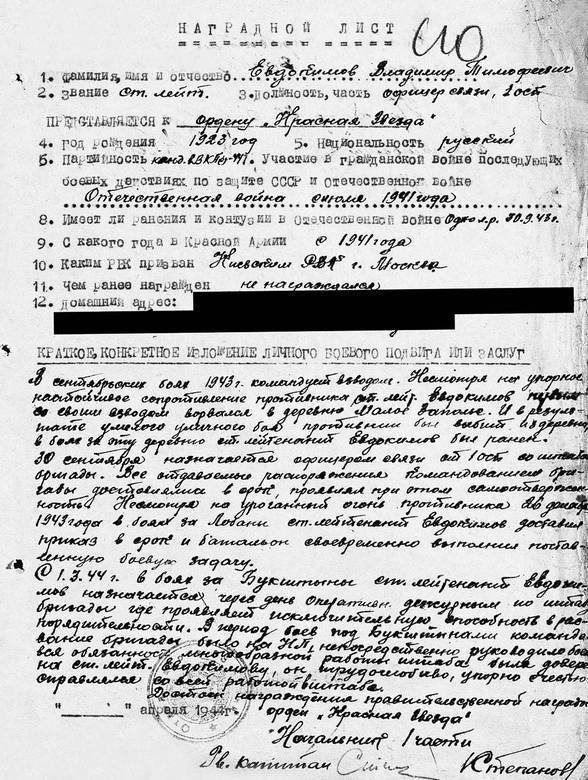 НАГРАДНОЙ ЛИСТ
1. Фамилия, имя и отчество Евдокимов Владимир Тимофеевич
2. Звание ст. лейт. 3. Должность, часть офицер связи, 1 ост
ПРЕДСТАВЛЯЕТСЯ К ордену „Красная Звезда"
4. год рождения 1923 год 5. Национальность русский
6. Партийность канд. ВКП(б) Участие в гражданской войне последующих
боевых действиях по защите СССР и отечественной войне
Отечественная война с июля 1941 года
8. Имеет ли ранения и контузии в Отечественной войне Одно л.р. 30.9.43 г.
9. С какого года в Красной Армии с 1941 года
10. Каким РВК призван Киевским РВК г. Москва
11. Чем ранее награжден не награждался
12. Домашний адрес:
КРАТКОЕ, КОНКРЕТНОЕ ИЗЛОЖЕНИЕ ЛИЧНОГО БОЕВОГО ПОДВИГА ИЛИ ЗАСЛУГ
В сентябрьских боях 1943 г. командует взводом. Несмотря на упорное,
настойчивое сопротивление противника ст. лейт. Евдокимов первым
со своим взводом ворвался в деревню Малое Заполье. И в резуль-
тате умелого уличного боя противник был выбит из деревни
в боях за эту деревню ст. лейтенант Евдокимов был ранен.
30 сентября назначается офицером связи от 1 ост со штабом
бригады. Все отдаваемые распоряжения командованием бри-
гады доставляли в срок, проявляя при этом самоотвержен-
ность. Несмотря на ураганный огонь противника 20 декабря
1943 года в боях за Лобани ст. лейтенант Евдокимов доставил
приказ в срок и батальон своевременно выполнил постав-
ленную боевую задачу.
С 1.3.44 г. в боях за Букштыны ст. лейтенант Евдоки-
мов назначается через день оператив. дежурным по штабу
бригады где проявляет исключительную способность в рас-
порядительности. В период боев под Букштынами командо-
вание бригады было на НП, непосредственно руководило боем
вся обязанность многообразной работы штаба была доверена
на ст. лейт. Евдокимову, он трудолюбиво, упорно и честно
справлялся со всей работой штаба.
Достоин награждения правительственной награды
орден „Красная Звезда"
" " апреля 1944 г.
Начальник 1 части
Гв. капитан Степанов